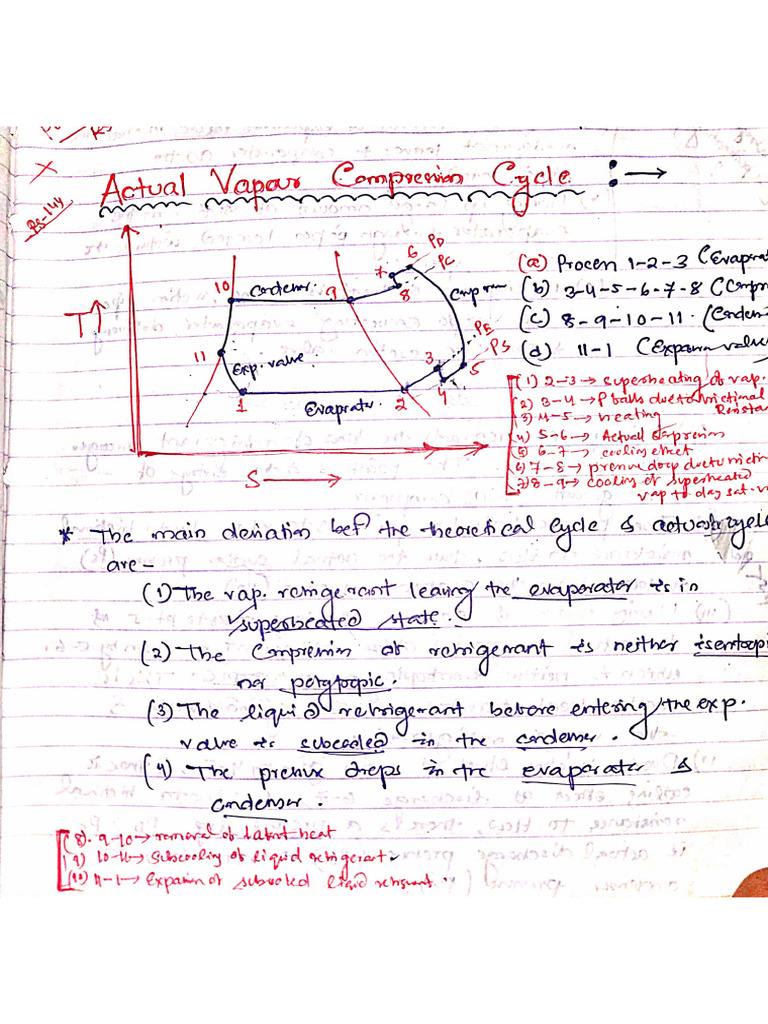 Ps-144
Actual Vapour Compression Cycle :→
T↑
S→
10
Condenser
9
7
6
PD
PC
8
Comp
11
Exp. valve
3
PE
PS
5
4
1
Evaprator
2
(a) Process 1-2-3 (Evaprat
(b) 3-4-5-6-7-8 (Comp
(c) 8-9-10-11. (Conden
(d) 11-1 (Expansion valve
(1) 2-3→ superheating of vap.
(2) 3-4→ P falls due to frictional
Resista
(3) 4-5→ heating
(4) 5-6→ Actual compression
(5) 6-7→ cooling effect
(6) 7-8→ pressure drop due to frictio
(7) 8-9→ cooling of superheated
vap to dry sat. v
* The main deviation betⁿ the theoretical cycle & actual cycle
are -
(1) The vap. refrigerant leaving the evaporator is in
superheated state.
(2) The Compression of refrigerant is neither isentropi
nor polytropic.
(3) The liquid refrigerant before entering the exp.
valve is subcooled in the condenser.
(4) The pressure drops in the evaporator &
condenser.
(8). 9-10→ removal of latent heat
(9) 10-11→ Subcooling of liquid refrigerant
(10) 11-1→ Expansion of subcooled liquid refrigerant.